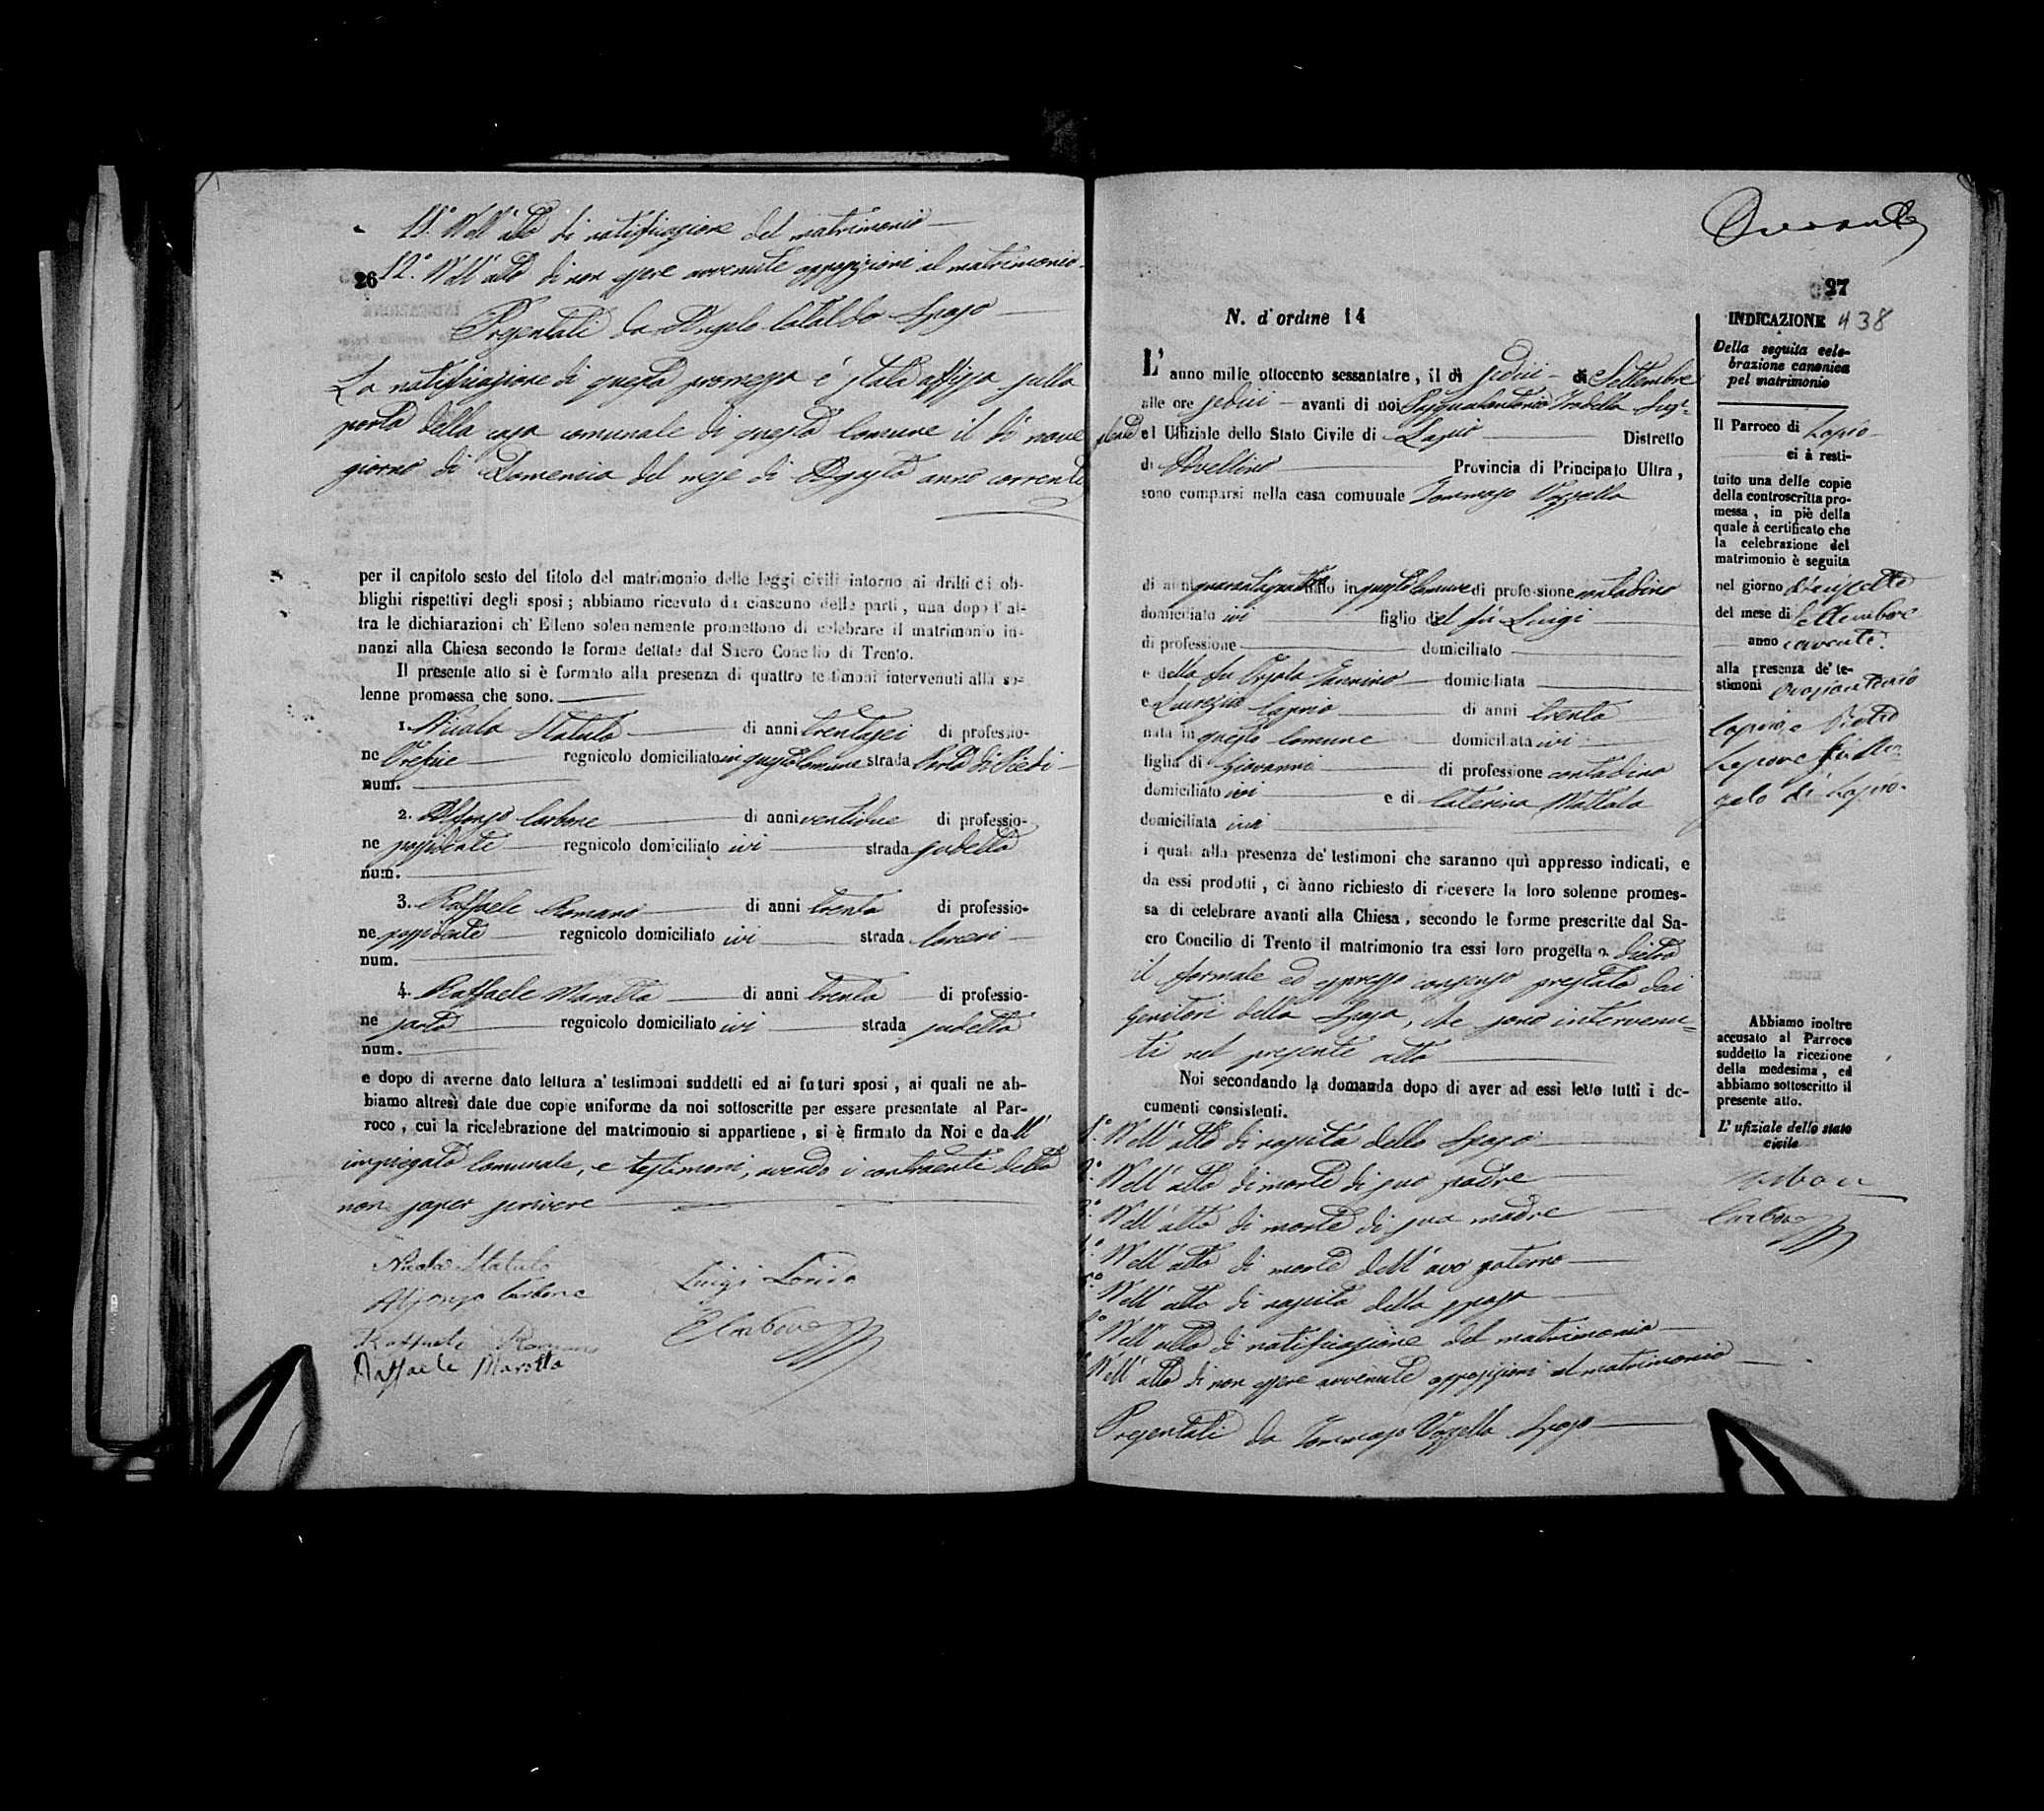 11.° Dell' atto di notificazione del matrimonio
12.° Dell' atto di non essere avvenute opposizioni al matrimonio
26
Presentati da Angelo Cataldo sposo
La notificazione di questa promessa è stata affissa sulla
porta della casa comunale di questo Comune il dì nove
giorno di Domenica del mese di Agosto anno corrente
per il capitolo sesto del titolo del matrimonio delle leggi civili intorno ai dritti ed ob-
blighi rispettivi degli sposi ; abbiamo ricevuto da ciascuno delle parti , una dopo l' al-
tra le dichiarazioni ch' Elleno solennemente promettono di celebrare il matrimonio in-
nanzi alla Chiesa secondo le forme dettate dal Sacro Concilio di Trento.
Il presente atto si è formato alla presenza di quattro testimoni intervenuti alla so-
lenne promessa che sono.
1. Nicola Statuto di anni trentasei di professio-
ne Orefice regnicolo domiciliato in questo Comune strada Porta di Piedi
num.
2. Alfonso Carbone di anni ventidue di professio-
ne possidente regnicolo domiciliato ivi strada
num.
3. Raffaele Romano di anni trenta di professio-
ne possidente regnicolo domiciliato ivi strada
num.
4. Raffaele Marotta di anni trenta di professio-
ne sarto regnicolo domiciliato ivi strada
num.
e dopo di averne dato lettura a' testimoni suddetti ed ai futuri sposi , ai quali ne ab-
biamo altresì date due copie uniforme da noi sottoscritte per essere presentate al Par-
roco , cui la ricelebrazione del matrimonio si appartiene , si è firmato da Noi e dall'
impiegato Comunale, e testimoni, avendo i contraenti detto
non saper scrivere
Nicola Statuto
Alfonso Carbone Luigi
Raffaele Romano Carbone
Raffaele Marotta
27
N. d'ordine 14
L' anno mille ottocento sessantatre , il dì sedici di Settembre
alle ore sedici avanti di noi Pasqualantonio
el Uffiziale dello Stato Civile di Lapio Distretto
di Avellino Provincia di Principato Ultra ,
sono comparsi nella casa comunale Tommaso Vozzella
di anni quarantaquattro nato in questo Comune di professione contadino
domiciliato ivi figlio del fu Luigi
di professione domiciliato
e della fu Orsola Iannino domiciliata
e Lucrezia Capino di anni trenta
nata in questo Comune domiciliata ivi
figlia di Giovanni di professione contadino
domiciliato ivi e di Caterina Mattala
domiciliata ivi
i quali alla presenza de' testimoni che saranno quì appresso indicati, e
da essi prodotti , ci ànno richiesto di ricevere la loro solenne promes-
sa di celebrare avanti alla Chiesa , secondo le forme prescritte dal Sa-
cro Concilio di Trento il matrimonio tra essi loro progettato. Dietro
il formale ed espresso consenso prestato dai
Genitori della sposa, che sono intervenu-
ti nel presente atto
Noi secondando la domanda dopo di aver ad essi letto tutti i do-
cumenti consistenti.
1.° Dell' atto di nascita dello sposo
2.° Dell' atto di morte di suo padre
3.° Dell' atto di morte di sua madre
4.° Dell' atto di morte dell' avo paterno
5.° Dell' atto di nascita della sposa
6.° Dell' atto di notificazione del matrimonio
Dell' atto di non essere avvenute opposizioni al matrimonio
Presentati da Tommaso Vozzella sposo
INDICAZIONE 438
Della seguita cele-
brazione canonica
pel matrimonio
Il Parroco di Lapio
ci à resti-
tuito una delle copie
della controscritta pro-
messa , in piè della
quale à certificato che
la celebrazione del
matrimonio è seguita
nel giorno diciassette
del mese di Settembre
anno corrente.
alla presenza de' te-
stimoni
di Lapio.
Abbiamo inoltre
accusato al Parroco
suddetto la ricezione
della medesima , ed
abbiamo sottoscritto il
presente atto.
L' ufiziale dello stato
civile
Carbone